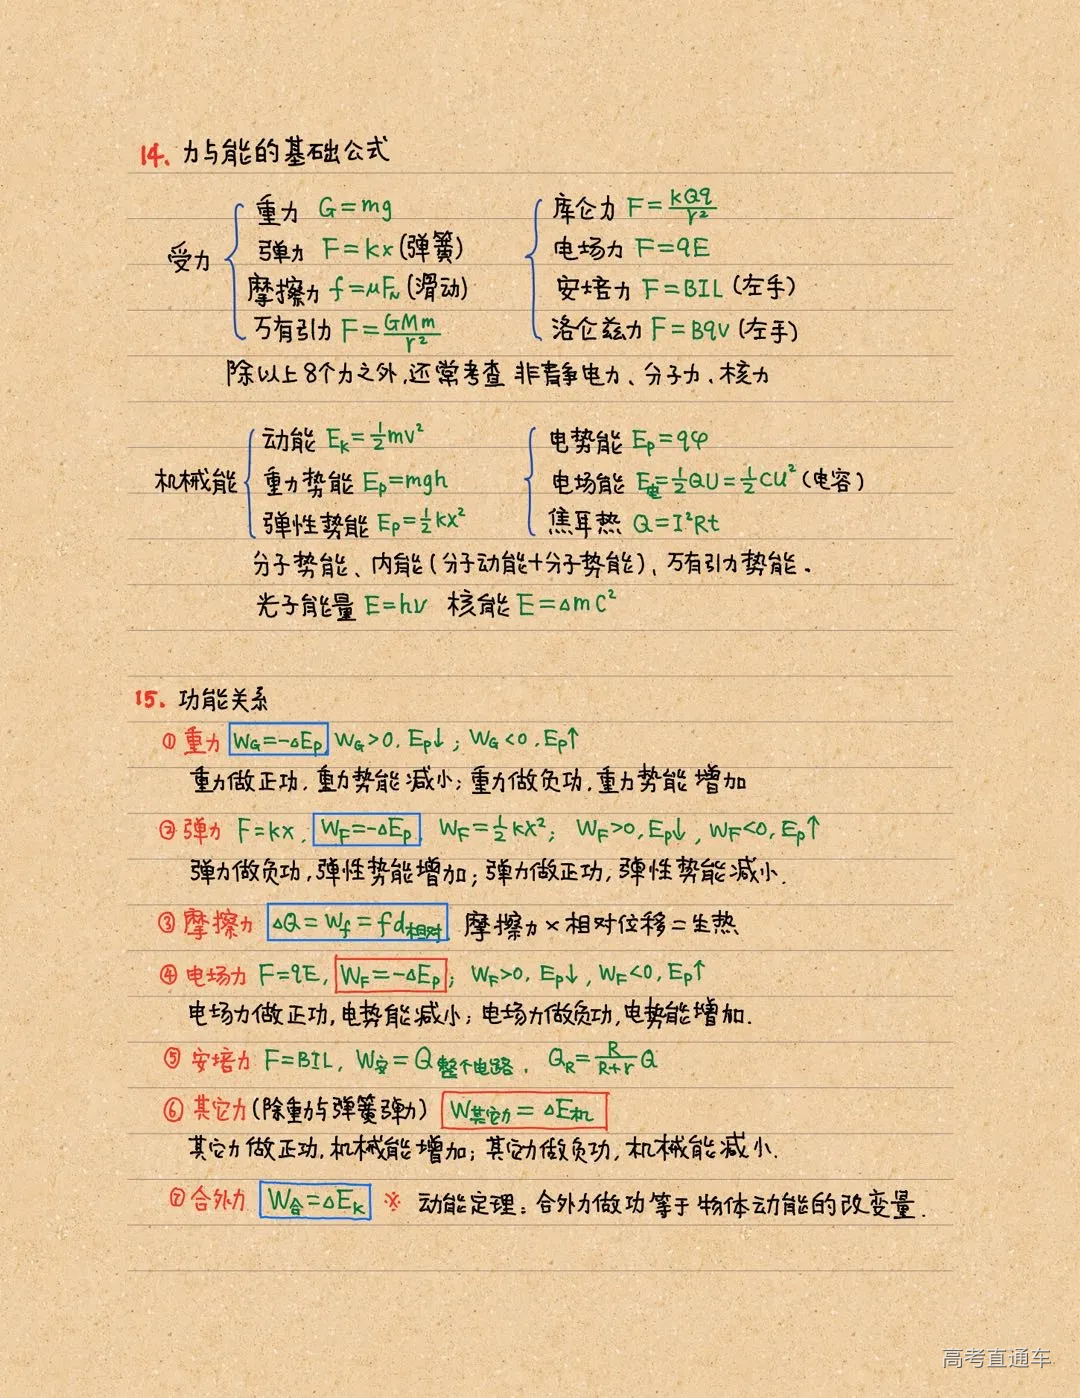 14. 力与能的基础公式
受力
重力 G=mg
弹力 F=kx(弹簧)
摩擦力 f=μF_N(滑动)
万有引力 F=GMm/r²
库仑力 F=kQq/r²
电场力 F=qE
安培力 F=BIL (左手)
洛仑兹力 F=Bqv (左手)
除以上8个力之外,还常考查 非静电力、分子力、核力
机械能
动能 E_K=½mv²
重力势能 E_P=mgh
弹性势能 E_P=½kx²
电势能 E_P=qφ
电场能 E_电=½QU=½CU²(电容)
焦耳热 Q=I²Rt
分子势能、内能(分子动能+分子势能)、万有引力势能.
光子能量 E=hν 核能 E=△mC²
15. 功能关系
① 重力 W_G=-△E_P W_G>0, E_P↓; W_G<0, E_P↑
重力做正功,重力势能减小;重力做负功,重力势能增加
② 弹力 F=kx, W_F=-△E_P, W_F=½kx²; W_F>0, E_P↓, W_F<0, E_P↑
弹力做负功,弹性势能增加;弹力做正功,弹性势能减小.
③ 摩擦力 △Q=W_f=fd_相对 摩擦力×相对位移=生热
④ 电场力 F=qE, W_F=-△E_P; W_F>0, E_P↓, W_F<0, E_P↑
电场力做正功,电势能减小;电场力做负功,电势能增加.
⑤ 安培力 F=BIL, W_安=Q_整个电路, Q_R=R/(R+r) Q
⑥ 其它力(除重力与弹簧弹力) W_其它力=△E_机
其它力做正功,机械能增加;其它力做负功,机械能减小.
⑦ 合外力 W_合=△E_K ※ 动能定理:合外力做功等于物体动能的改变量.
高考直通车